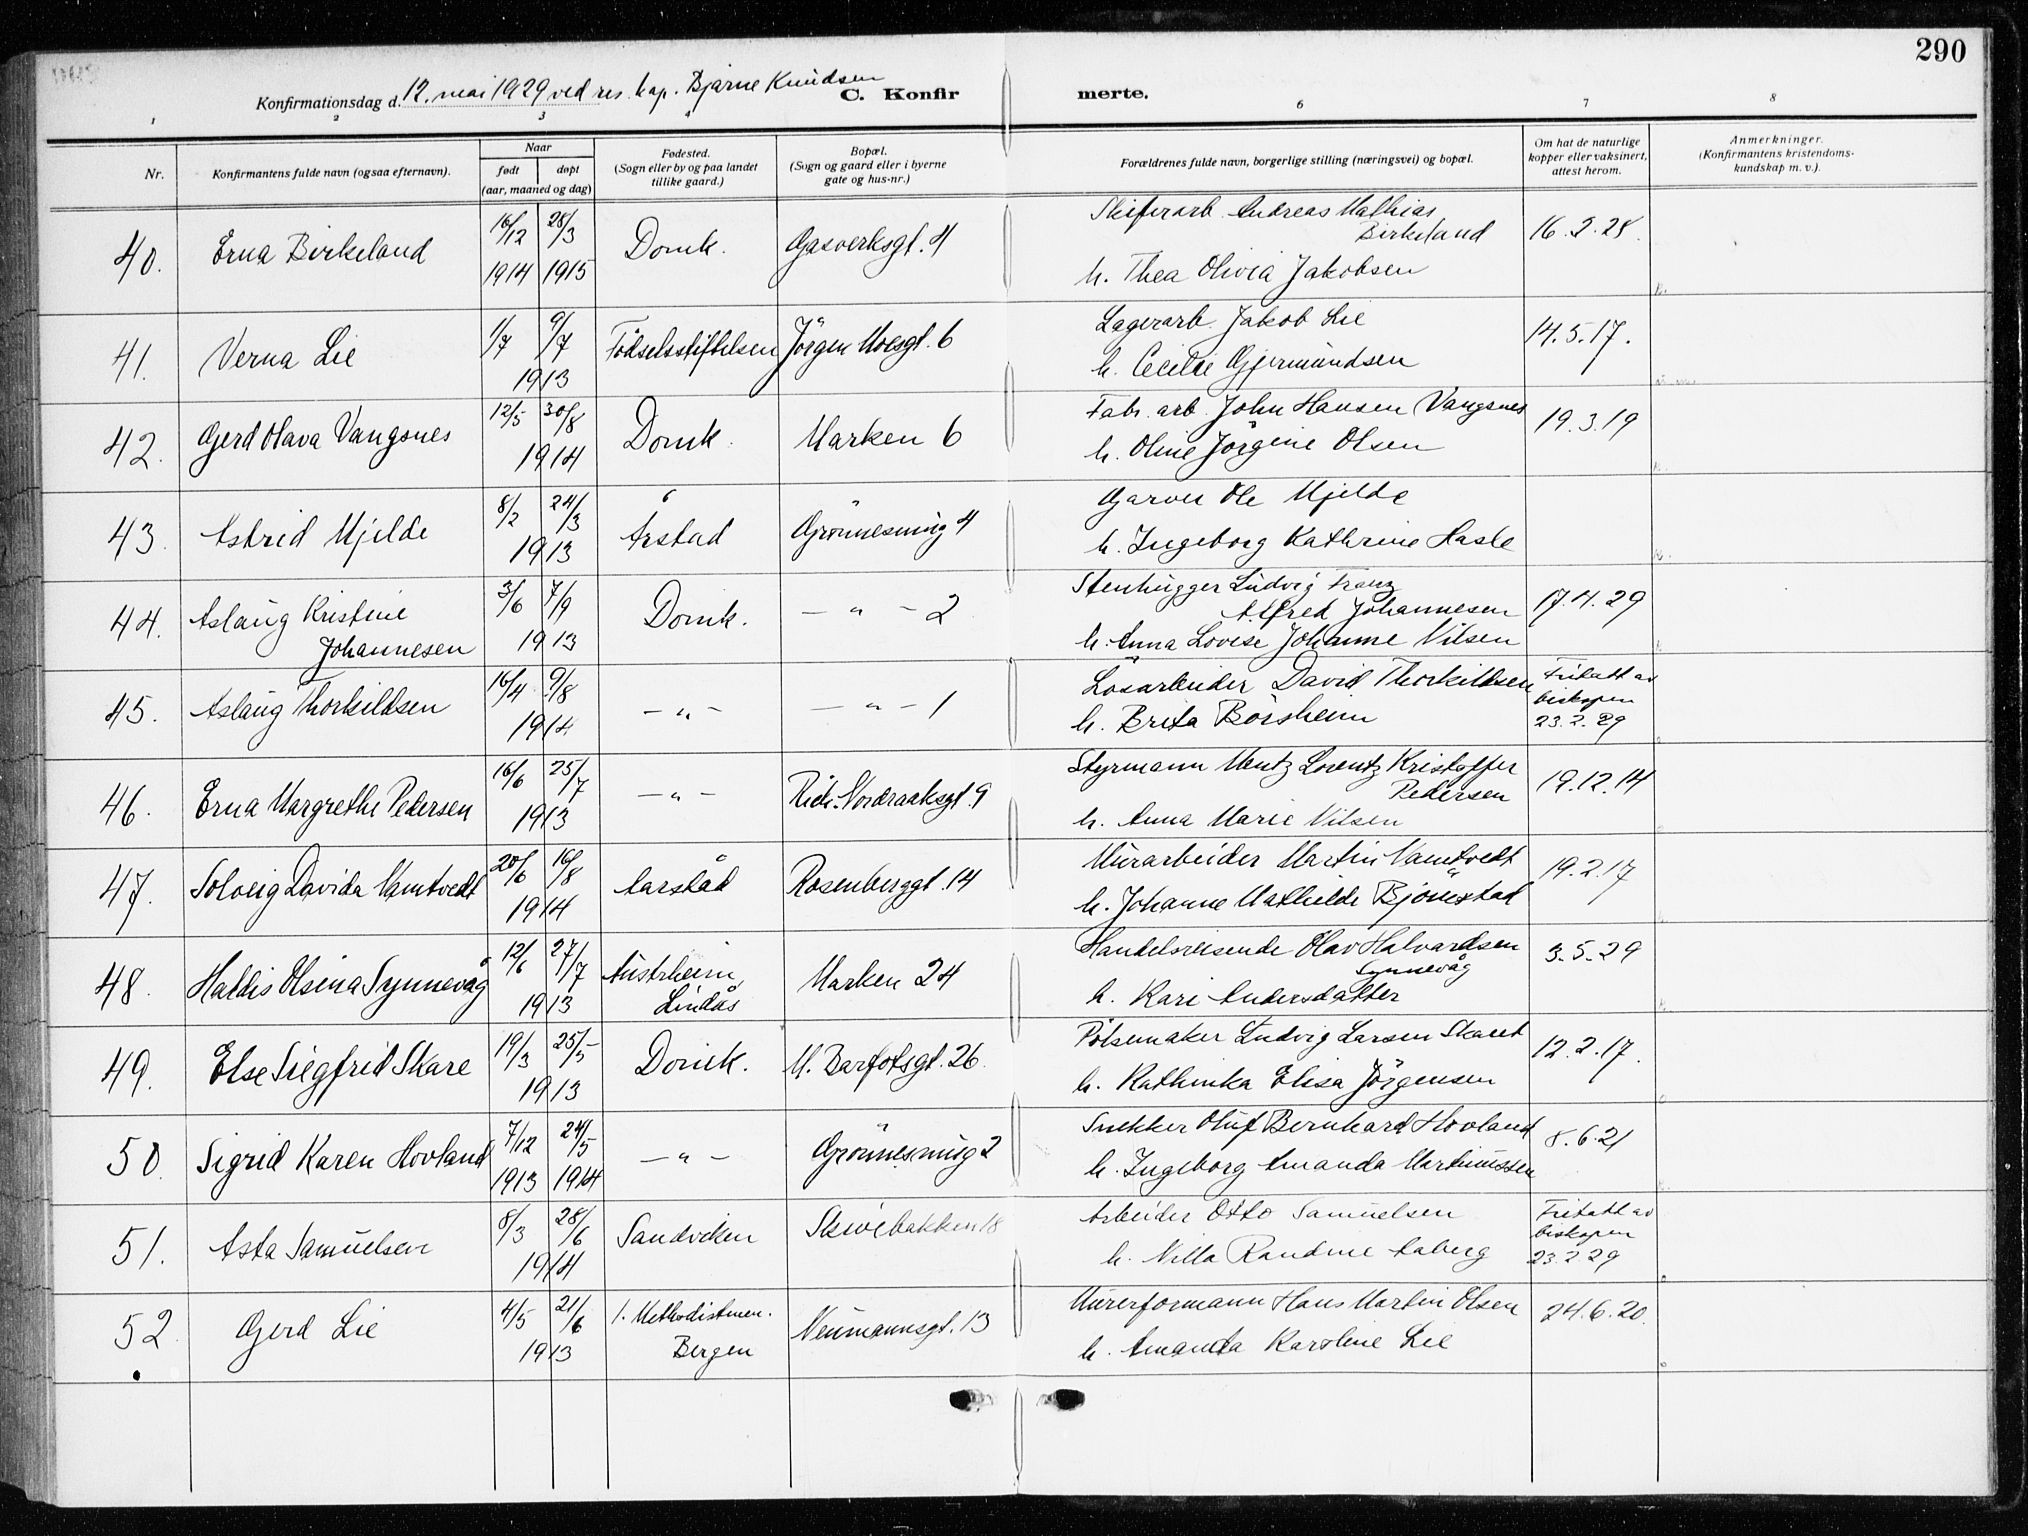 290
Konfirmationsdag d. 12. mai 1929 ved res. kap. Bjarne Knudsen
C. Konfirmerte.
1 2 3 4 6 7 8
Nr.
Konfirmantens fulde navn (ogsaa efternavn).
Naar
født døpt
(aar, maaned og dag)
Fødested.
(Sogn eller by og paa landet
tillike gaard.)
Bopæl.
(Sogn og gaard eller i byerne
gate og hus-nr.)
Forældrenes fulde navn, borgerlige stilling (næringsvei) og bopæl.
Om hat de naturlige
kopper eller vaksinert,
attest herom.
Anmerkninger.
(Konfirmantens kristendoms-
kundskap m. v.).
40. Erna Birkeland 16/12 1914 28/3 1915 Domk. Gasverksgt. 4
Skiferarb. Andreas Mathias
Birkeland
h. Thea Olivia Jakobsen
16.2.28.
41. Verna Lie 1/7 9/7 1913 Födselsstiftelsen Jörgen Moesgt. 6
Lagerarb. Jakob Lie
h. Cecilie Gjermundsen
14.5.17.
42. Gerd Olava Vangsnes 12/5 30/8 1914 Domk. Marken 6
Fabr. arb. John Hansen Vangsnes
h. Oline Jörgine Olsen
19.3.19
43. Astrid Mjelde 8/2 24/3 1913 Årstad Grönnesmug 4
Garver Ole Mjelde
h. Ingeborg Kathrine Hasle
44. Aslaug Kristine
Johannesen
3/6 7/9 1913 Domk. — " — 2
Stenhugger Ludvig Franz
Alfred Johannesen
h. Anna Lovise Johanne Nilsen
17.4.29
45. Aslaug Thorkildsen 16/4 9/8 1914 — " — — " — 1
Lösarbeider David Thorkildsen
h. Brita Börsheim
Fritatt av
biskopen
23.2.29
46. Erna Margrethe Pedersen 16/6 25/7 1913 — " — Rich. Nordraaksgt. 9
Styrmann Mentz Lorentz Kristoffer
Pedersen
h. Anna Marie Nilsen
19.12.14
47. Solveig Davida Vamtvedt 20/6 16/8 1914 Aarstad Rosenberggt. 14
Murarbeider Martin Vamtvedt
h. Johanne Mathilde Bjönnstad
19.2.17
48. Haldis Olsina Synnevåg 12/6 27/7 1913 Austrheim,
Lindås
Marken 24
Handelsreisende Olav Halvardsen
Synnevåg
h. Kari Andersdatter
3.5.29
49. Else Siegfrid Skare 19/3 25/5 1913 Domk. M. Barfotsgt. 26.
Pölsemaker Ludvig Larsen Skaret
h. Kathinka Elisa Jörgensen
12.2.17.
50. Sigrid Karen Hovland 7/12 1913 24/5 1914 — " — Grönnesmug 2
Snekker Oluf Bernhard Hovland
h. Ingeborg Amanda Martinussen
8.6.21
51. Asta Samuelsen 8/3 28/6 1914 Sandviken Skivebakken 18
Arbeider Otto Samuelsen
h. Nilla Randine Aaberg
Fritatt av
biskopen
23.2.29
52. Gerd Lie 4/5 21/6 1913 1. Methodistmen.
Bergen
Neumannsgt. 13
Murerformann Hans Martin Olsen
h. Amanda Karoline Lie
24.6.20.